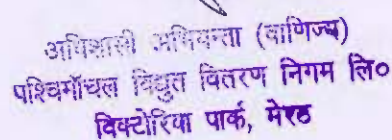 अधिशासी अभियन्ता (वाणिज्य)
पश्चिमाँचल विद्युत वितरण निगम लि०
विक्टोरिया पार्क, मेरठ